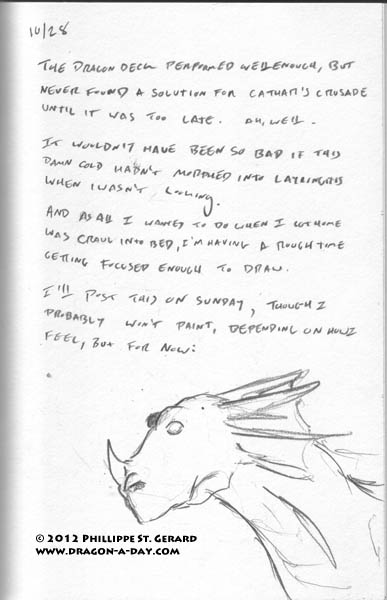 10/28
THE DRAGON DECK PERFORMED WELL ENOUGH, BUT
NEVER FOUND A SOLUTION FOR CATHAR'S CRUSADE
UNTIL IT WAS TOO LATE. AH, WELL.
IT WOULDN'T HAVE BEEN SO BAD IF THIS
DAMN COLD HADN'T MORPHED INTO LARYNGITIS
WHEN I WASN'T LOOKING.
AND AS ALL I WANTED TO DO WHEN I GOT HOME
WAS CRAWL INTO BED, I'M HAVING A ROUGH TIME
GETTING FOCUSED ENOUGH TO DRAW.
I'LL POST THIS ON SUNDAY, THOUGH I
PROBABLY WON'T PAINT, DEPENDING ON HOW I
FEEL, BUT FOR NOW:
© 2012 PHILLIPPE ST. GERARD
WWW.DRAGON-A-DAY.COM